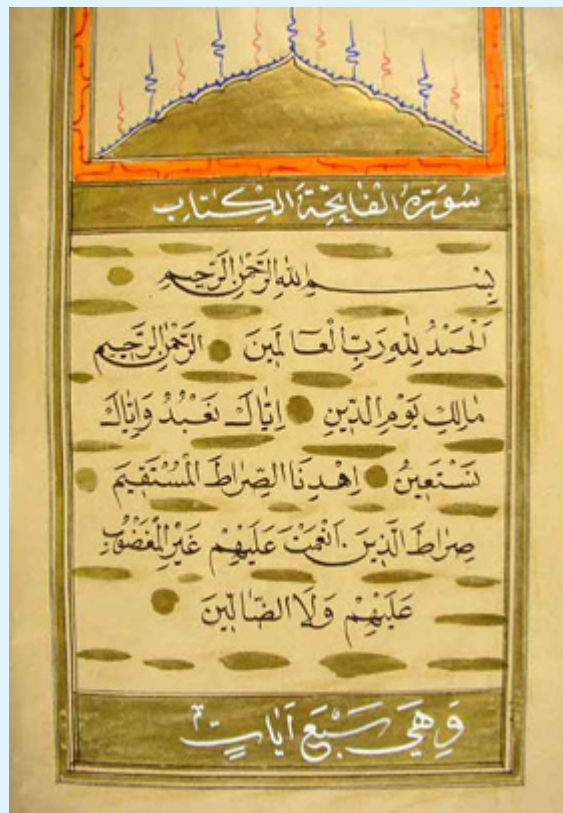 سُورَةُ الْفَاتِحَةِ الْكِتَابِ
بِسْمِ اللهِ الرَّحْمٰنِ الرَّحِيمِ
اَلْحَمْدُ لِلهِ رَبِّ الْعَالَمِينَ الرَّحْمٰنِ الرَّحِيمِ
مٰالِكِ يَوْمِ الدِّينِ اِيَّاكَ نَعْبُدُ وَاِيَّاكَ
نَسْتَعِينُ اِهْدِنَا الصِّرَاطَ الْمُسْتَقِيمَ
صِرَاطَ الَّذِينَ اَنْعَمْتَ عَلَيْهِمْ غَيْرِ الْمَغْضُوبِ
عَلَيْهِمْ وَلَا الضَّالِّينَ
وَهِيَ سَبْعُ اٰيَاتٍ